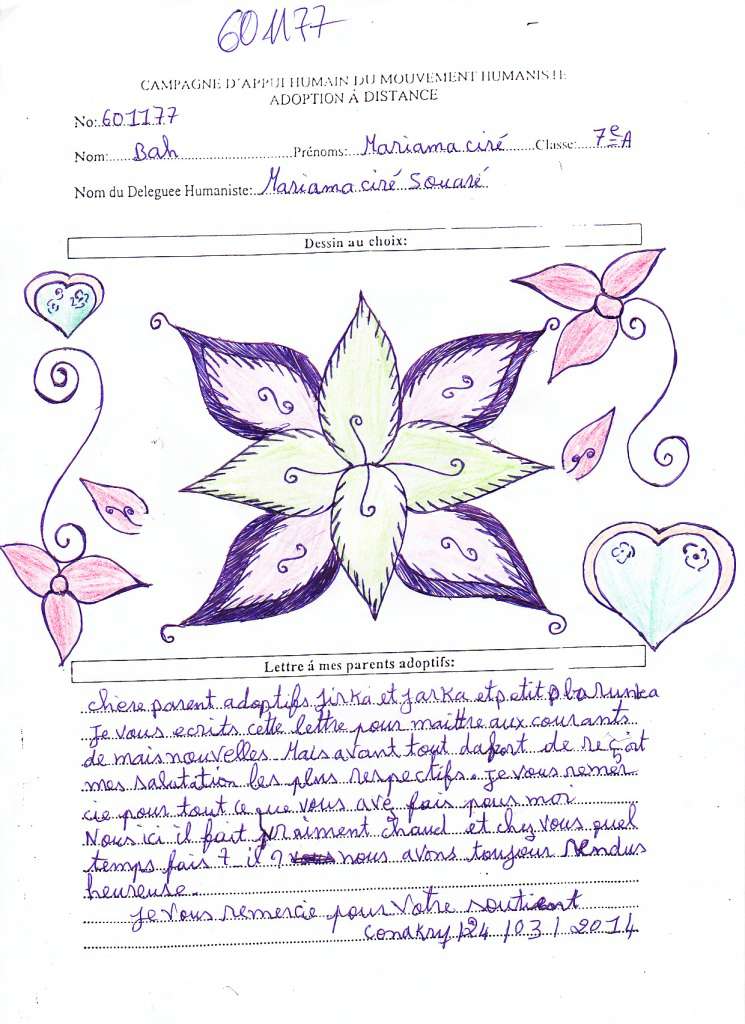 601177
CAMPAGNE D'APPUI HUMAIN DU MOUVEMENT HUMANISTE
ADOPTION À DISTANCE
No: 601177
Nom: Bah Prénoms: Mariama ciré Classe: 7e A
Nom du Deleguee Humaniste: Mariama ciré Souaré
Dessin au choix:
Lettre á mes parents adoptifs:
chère parent adoptifs Jirka et Jarka et petit
Je vous ecrits cette lettre pour maittre aux courants
de mais nouvelles Mais avant tout dafort de reçort
mes salutation les plus respectifs. Je vous remer
cie pour tout ce que vous avé fais pour moi
Nous ici il fait vraiment chaud et chez vous quel
temps fais t il ? nous avons toujour rendus
heureuse.
Je vous remercie pour votre soutient
Conakry 24 / 03 / 2014